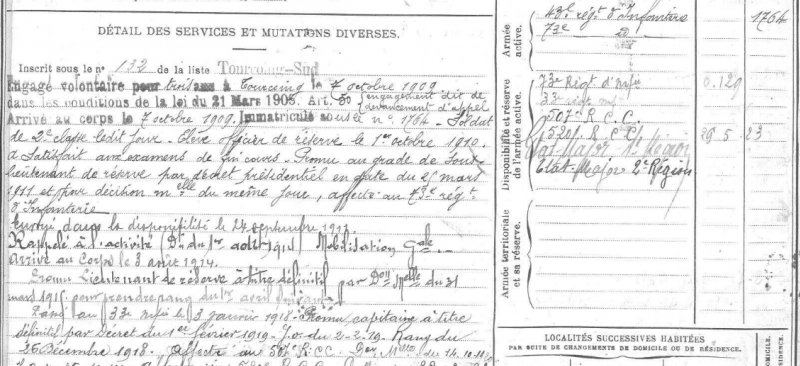 DÉTAIL DES SERVICES ET MUTATIONS DIVERSES.
Inscrit sous le nº 132 de la liste Tourcoing-Sud
Engagé volontaire pour trois ans à Tourcoing le 7 octobre 1909
dans les conditions de la loi du 21 Mars 1905. Art. 50 (engagement dit de devancement d'appel
Arrivé au corps le 7 octobre 1909. Immatriculé sous le nº 1764. Soldat
de 2e classe ledit jour. Elève officier de réserve le 1er octobre 1910.
a satisfait aux examens de fin cours. Promu au grade de Sous
lieutenant de réserve par décret présidentiel en date du mars
1911 et par décision melle du même jour, affecté au 73e régt
d'Infanterie
dans la disponibilité le 24 septembre 1912.
Rappelé à l'activité (Dt du 1er août 1914) Mobilisation Gale
Arrivé au Corps le 3 août 1914.
Promu Lieutenant de réserve à titre définitif par Don Melle du 31
mars 1915 pour prendre rang du 1er avril
au 33e infie le 3 janvier 1918. Promu capitaine à titre
définitif par Décret du 1er février 1919. J.o. du 2-2-19. Rang du
25 Décembre 1918. Affecté au 507e R.C.C. Don Melle du 14.10.
Armée active.
43e régt d'Infanterie
73e do
1764
Disponibilité et réserve de l'armée active.
73e Régt d'infie
0.129
33e
507e R.C.C.
520e R.C.C.
29-5-23
Etat-Major 1re Région
Etat-Major 2e Région
Armée territoriale et sa réserve.
LOCALITÉS SUCCESSIVES HABITÉES
PAR SUITE DE CHANGEMENTS DE DOMICILE OU DE RÉSIDENCE.